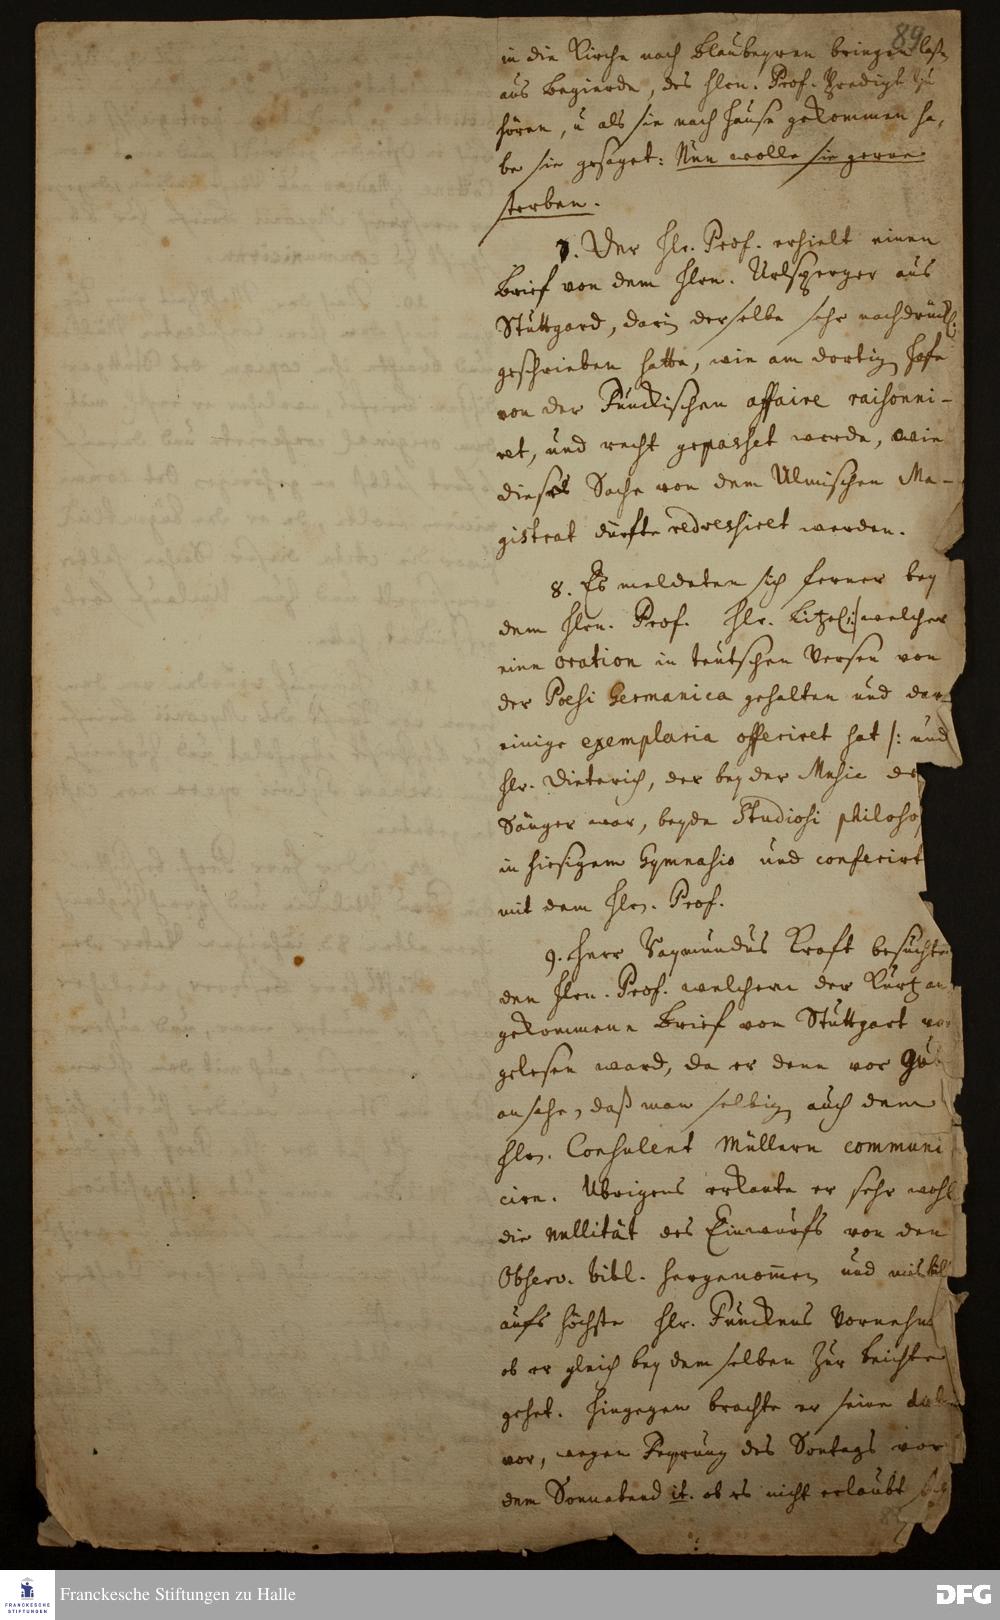 89
in die Kirche nach Blaubeyren bringen laßen
aus Begierde, des Hrn. Prof. Predigt zu
hören, u als sie nach Hause gekommen ha,
be sie gesaget: Nun wolle sie gerne
sterben.
7. Der Hr. Prof. erhielt einen
Brief von dem Hrn. Urlsperger aus
Stuttgard, darin derselbe sehr nachdrückl.
geschrieben hatte, wie am dortigen Hofe
von der Funckischen affaire raisonni-
ret, und recht gepasset werde, wie
dieses Sache von dem Ulmischen Ma-
gistrat dürfte redressiret werden.
8. Es meldeten sich ferner bey
dem Hrn. Prof. Hr. Litzel /: welcher
eine oration in teutschen Versen von
der Poesi Germanica gehalten und dar
einige exemplaria offeriret hat :/ und
Hr. Dieterich, der bey der Music der
Sänger war, beyde Studiosi philoso
in hiesigem Gymnasio und conferirt
mit dem Hrn. Prof.
9. Herr Raymundus Kraft besuchte
den Hrn. Prof. welchem der Kurtz an
gekommene Brief von Stuttgart vor
gelesen ward, da er denn vor gut
ansahe, daß man selbigen auch dem
Hrn. Consulent Müllern communi
ciren. Ubrigens erkante er sehr wohl
die nullität des Einwurfs von den
Observ. bibl. hergenommen und misbill
aufs höchste Hr. Funckens Vornehm
ob er gleich bey demselben zur Beichte
gehet. Hingegen brachte er seine
vor, wegen Feyrung des Sontags vor
dem Sonnabend it. ob es nicht erlaubt
Franckesche Stiftungen zu Halle
FRANCKESCHE
STIFTUNGEN
DFG